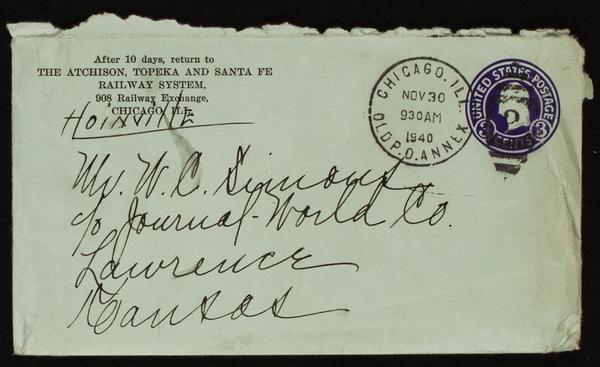 After 10 days, return to
THE ATCHISON, TOPEKA AND SANTA FE
RAILWAY SYSTEM,
908 Railway Exchange,
CHICAGO, ILL.
HOINVILLE
CHICAGO, ILL.
NOV 30
930AM
1940
OLD P.O. ANNEX
UNITED STATES POSTAGE
3 CENTS 3
Mr. W. C. Simons
c/o Journal-World Co.
Lawrence
Kansas